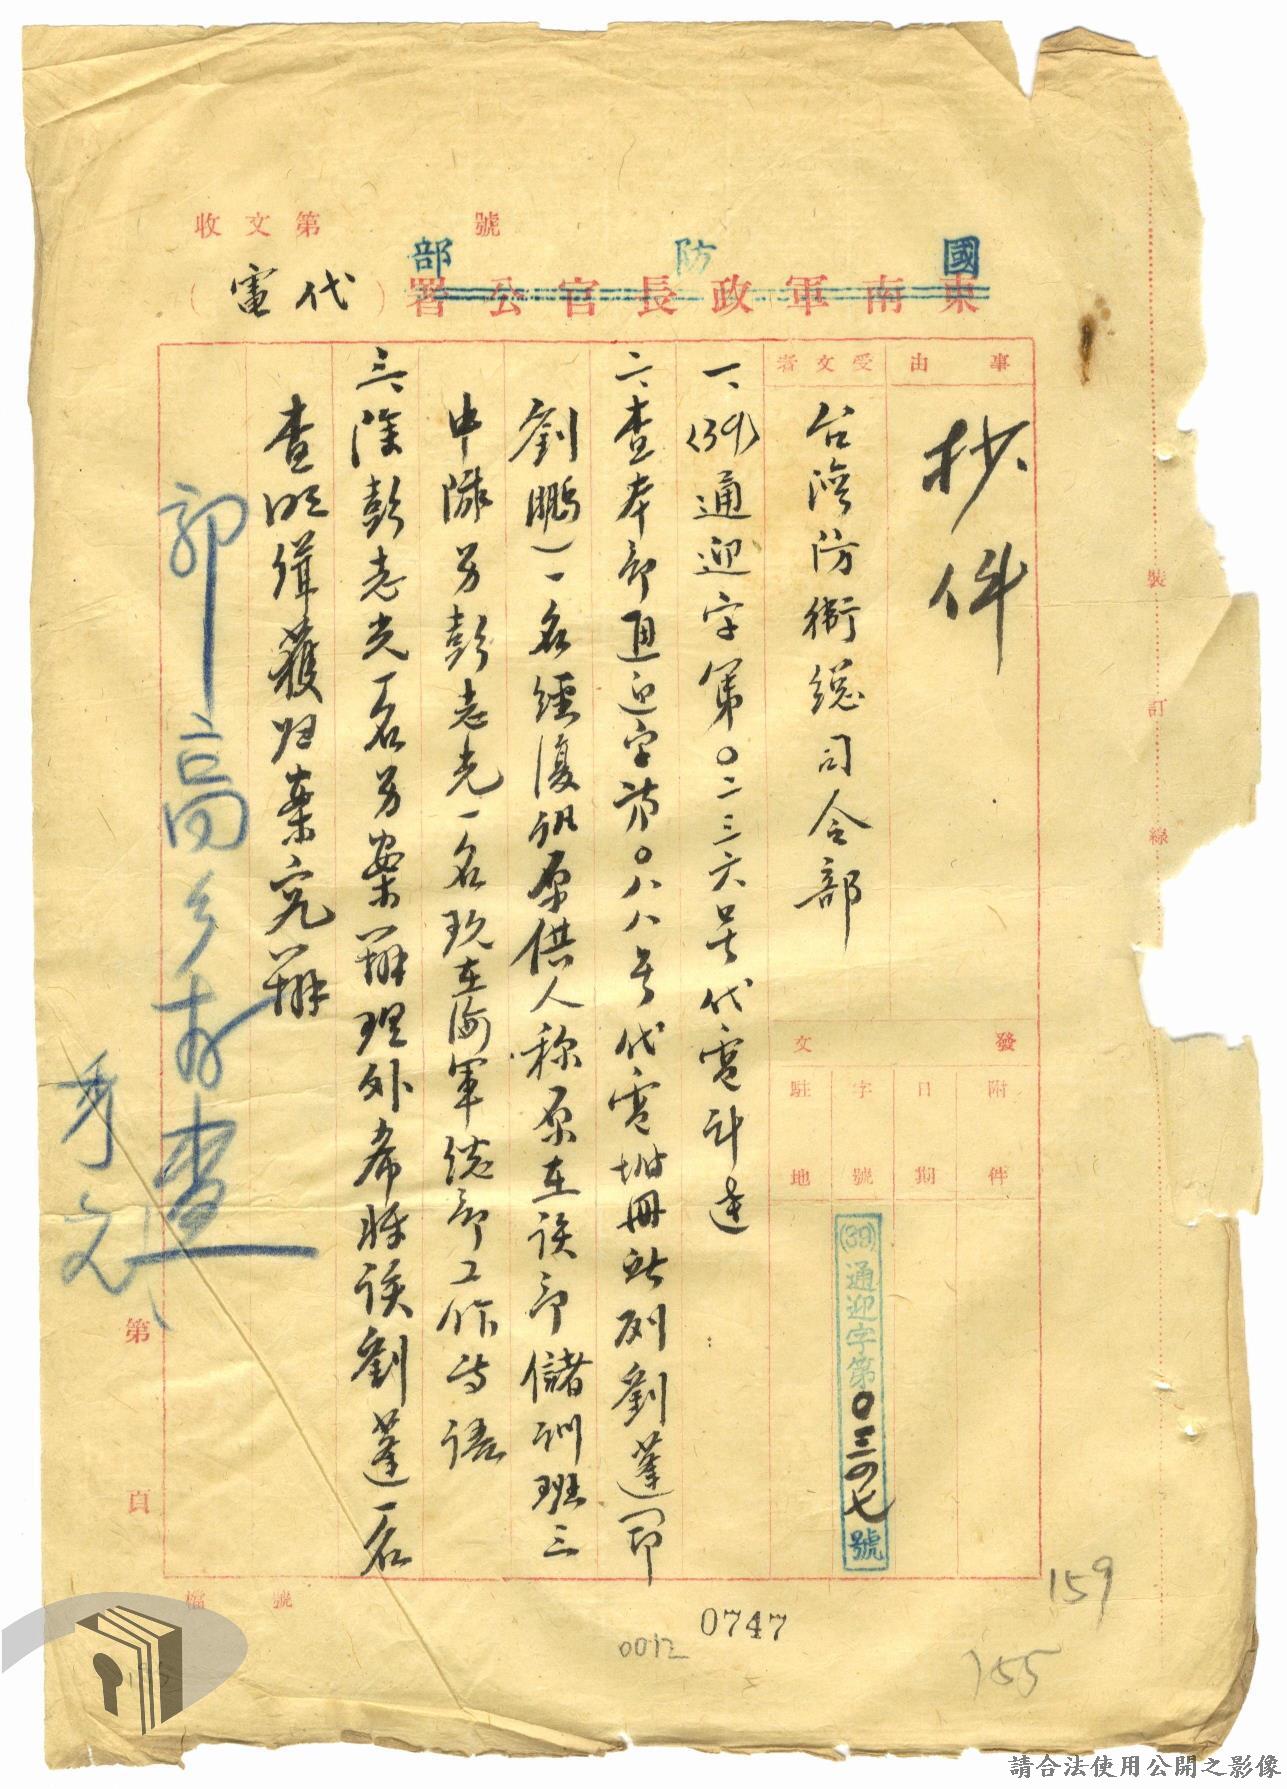 收文第　　　號
國防部
東南軍政長官公署（代電）
事由
抄件
受文者
台湾防衛総司令部
發文
附件
日期
字號
駐地
(39)通迎字第〇三四七號
一、(39)通迎字第〇二三六号代電計達
二、查本部通迎字第〇八八号代電坿冊所列劉蓬(即
劉鵬)一名經復訊原供人称原在該部儲訓班三
中隊另彭志光一名現在海軍総部工作等語
三、除彭志光一名另案辦理外希將該劉蓬一名
查明緝獲归案究辦
郭高
查
第　　頁
檔　　號
裝訂線
0747
0012
159
155
請合法使用公開之影像